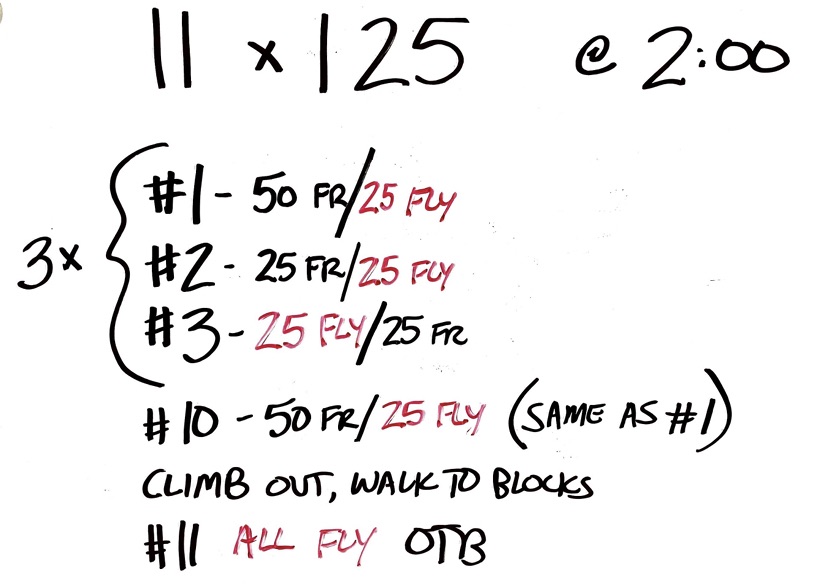 11 x 125 @ 2:00
3x
#1 - 50 FR/25 FLY
#2 - 25 FR/25 FLY
#3 - 25 FLY/25 FR
#10 - 50 FR/25 FLY (SAME AS #1)
CLIMB OUT, WALK TO BLOCKS
#11 ALL FLY OTB